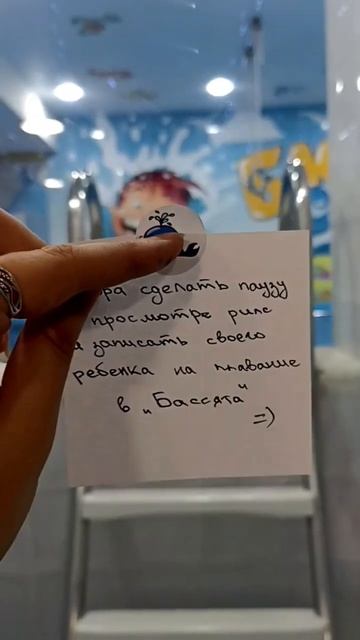 ра сделать паузу
просмотре рилс
и записать своего
ребенка на плавание
в „Бассята"
=)